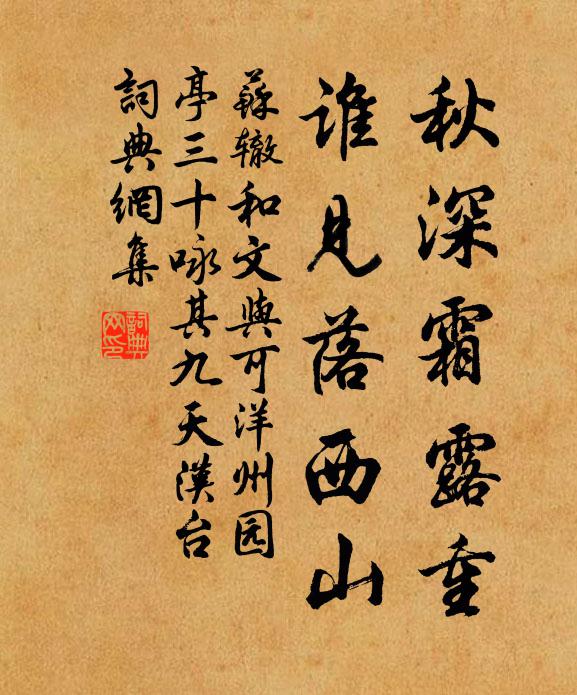 秋深霜露重
谁见落西山
蘇辙和文與可洋州园
亭三十咏其九天漢台
詞典網集
詞典
网印